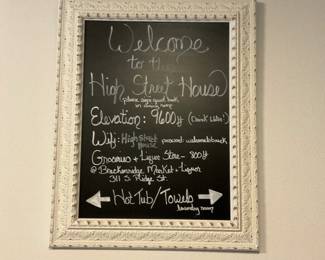 Welcome
to the
High Street House
please sign guest book
in dining room
Elevation: 9600 ft (Drink Water!)
Wifi: High Street House password: welcometobreck
Groceries + Liquor Store - 300 ft
@ Breckenridge Market + Liquor
311 S. Ridge St.
Hot Tub/Towels
laundry room